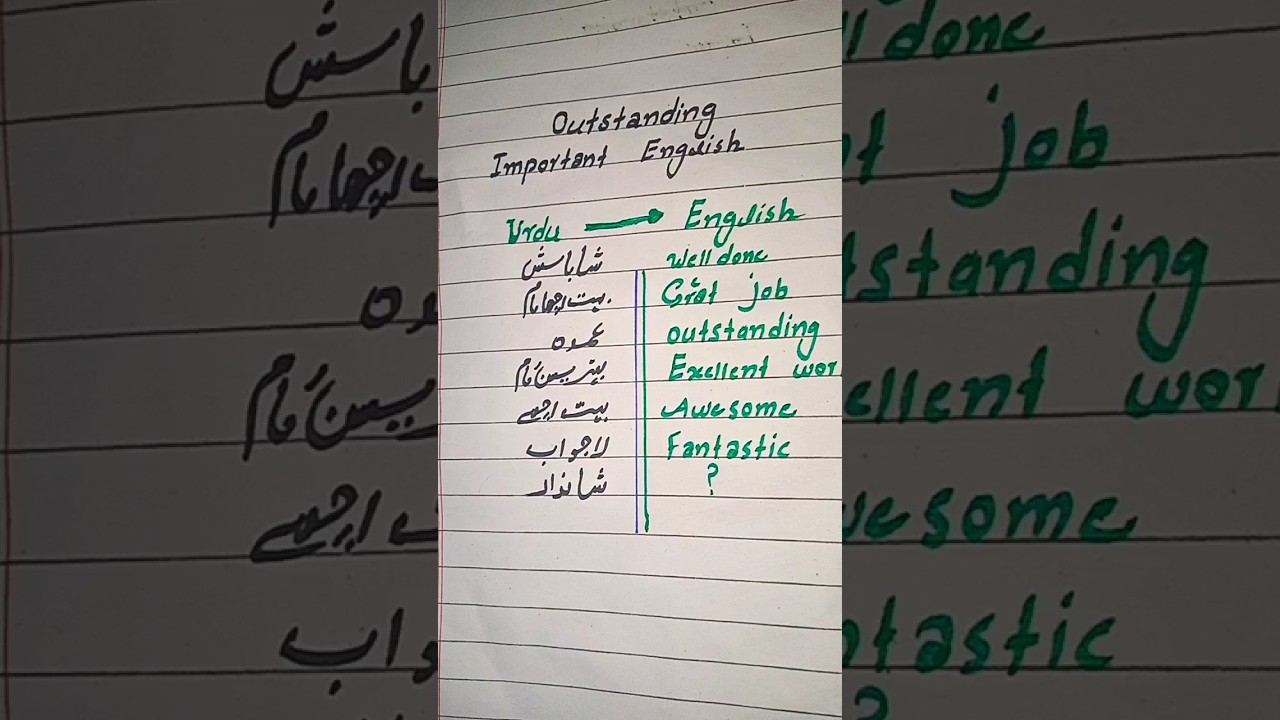 Outstanding
Important English
Urdu → English
شاباش Well done
بہت اچھا کام Great job
عمدہ outstanding
بہترین کام Exellent wor
بہت اچھے Awesome
لاجواب Fantastic
شاندار ?